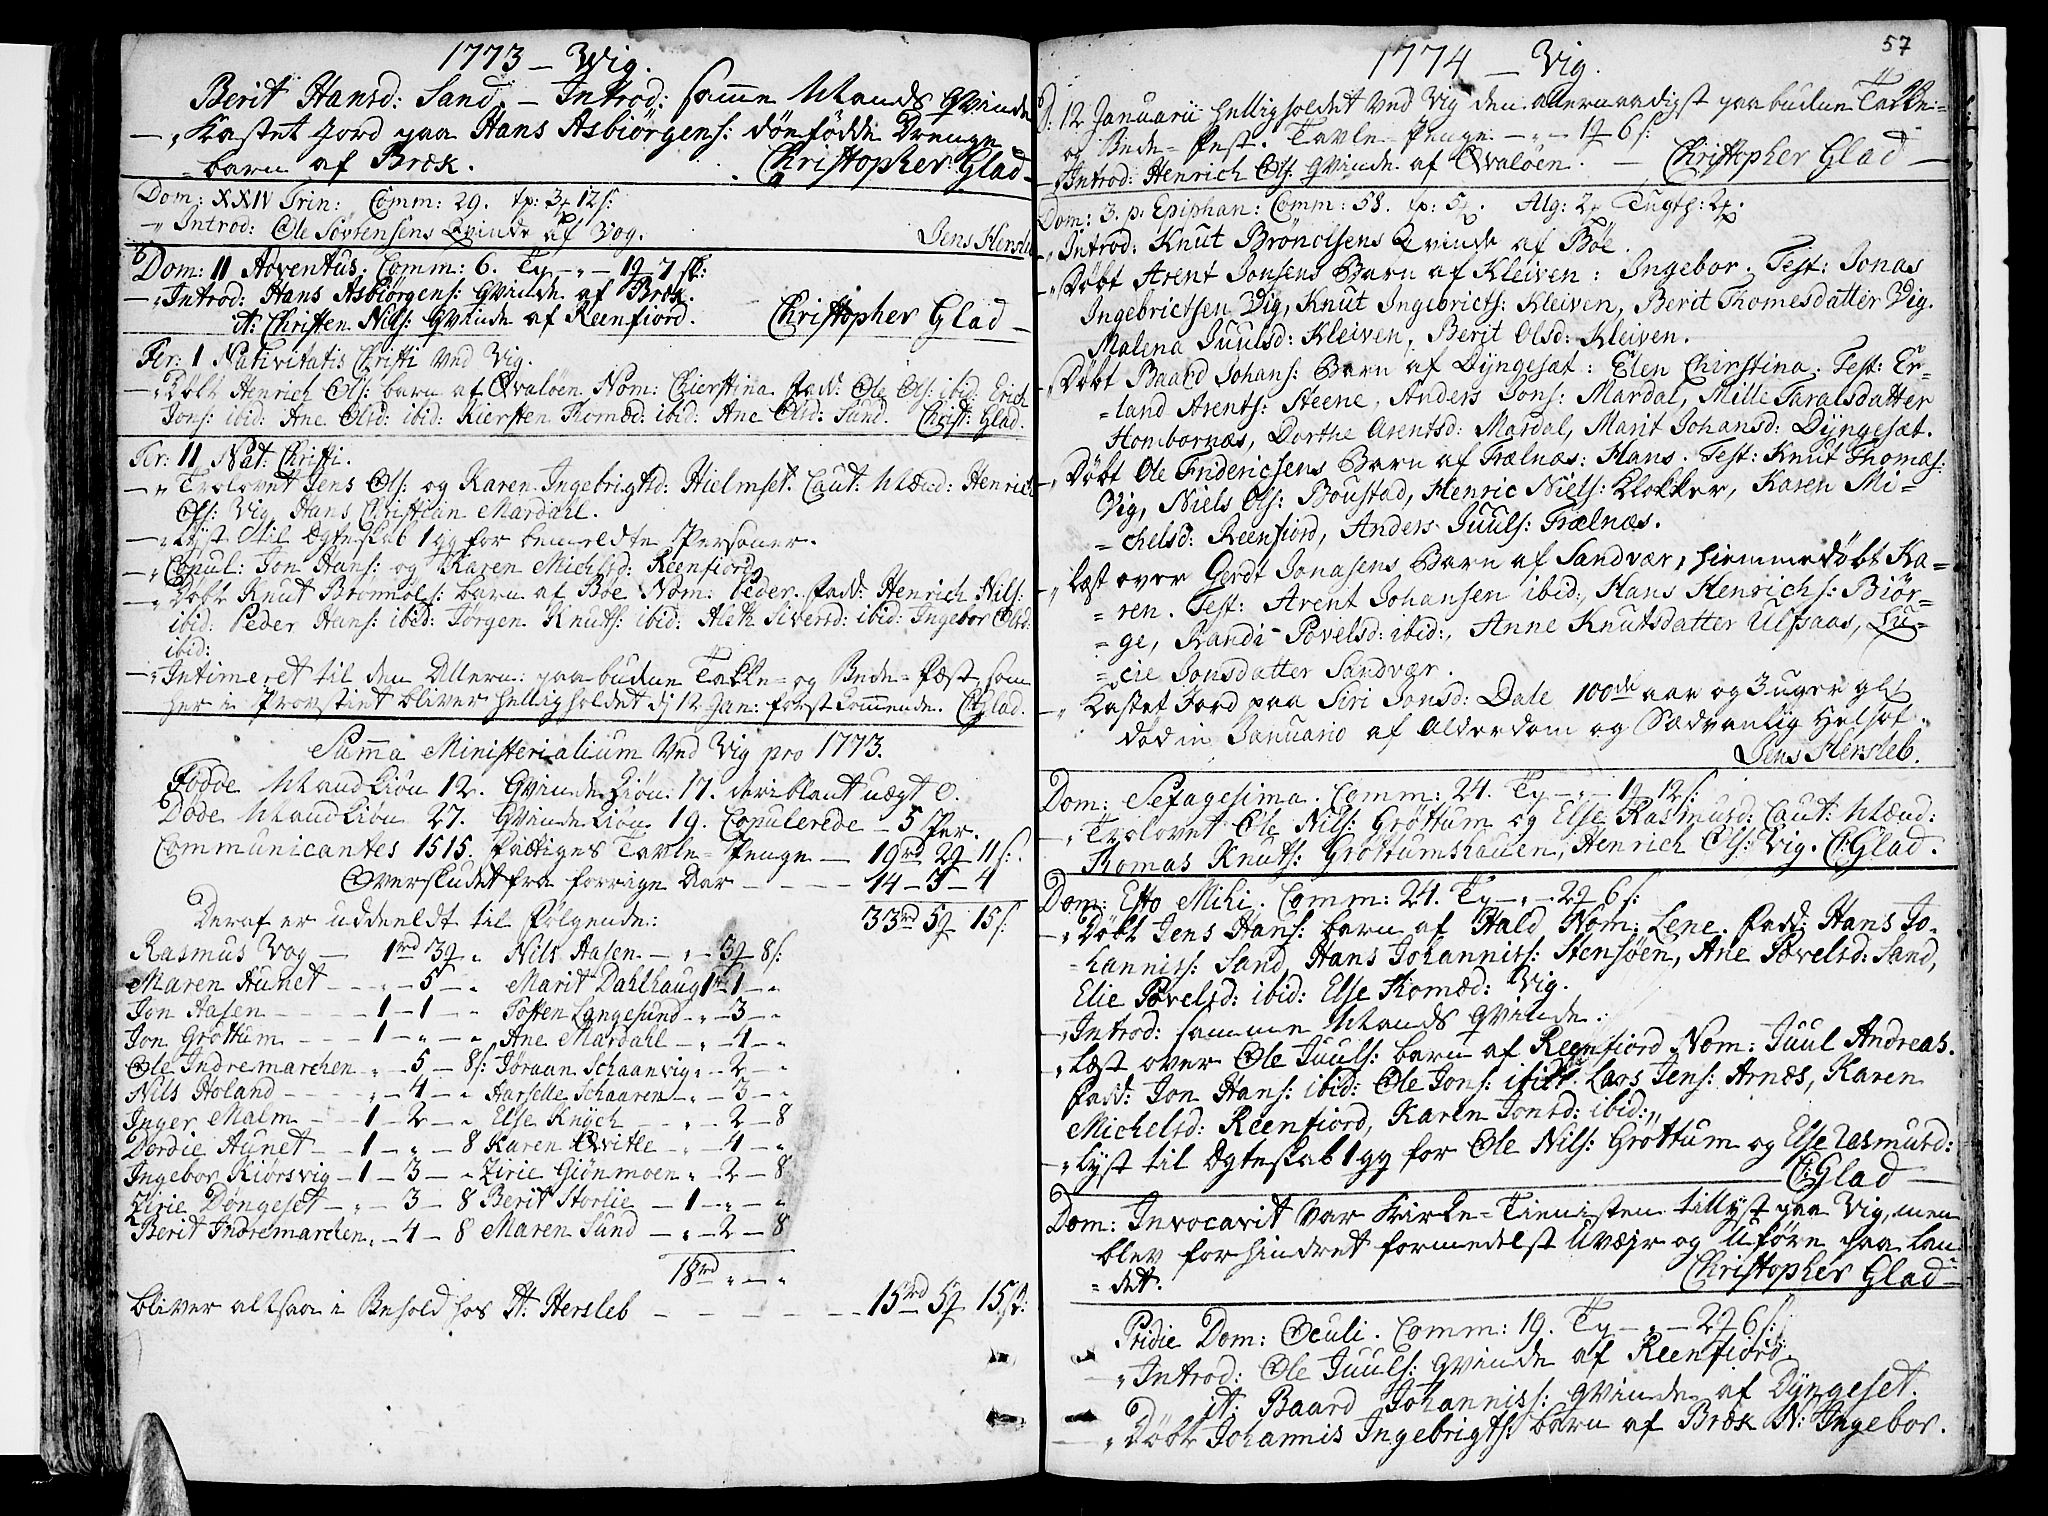 1773 – Vig.
Berit Hansd: Sand. – Introd: samme Mands Qvinde
– „ Kastet Jord paa Hans Asbiörgens: dödfödde Drenge
= barn af Bræk. Christopher Glad –
Dom: XXIV Trin: Comm: 29. tp: 3 12 s:
– „ Introd: Ole Sörrensens Qvinde af Vog. Jens Hersleb
Dom: II Adventus. Comm: 6. Tp – „ – 1 7 sk:
– „ Introd: Hans Asbiörgens: Qvinde af Bræk.
it: Christen Nils: Qvinde af Reenfiord. Christopher Glad –
Fer: I Nativitatis Christi ved Vig.
– Döbt Henrich Ols: barn af Qvalöen Nom: Chierstina Fadd: Ole Ols: ibid: Erich
Jons: ibid: Ane Olsd: ibid: Kiersten Thomæd: ibid: Ane Olsd: Sund. Christ: Glad.
Fer: II Nat: Christi.
– „ Trolovet Jens Ols: og Karen Ingebrigtsd: Hielmset. Caut: Mænd: Henrich
Ols: Vig, Hans Christian Mardahl.
– „ Lyst til Ægteskab 1 gg for bemeldte Personer.
– „ Copul: Jon Hans: og Karen Michelsd: Reenfiord
– „ Döbt Knut Brönnols: barn af Böe Nom: Peder. Fadd: Henrich Nils:
ibid: Peder Hans: ibid: Jörgen Knuts: ibid: Aleth Siversd: ibid: Ingebor Olsd:
ibid:
– „ Intimeret til den Allern: paabudene Takke= og Bede= Fæst, som
her i Provstiet bliver helligholdet d: 12 Jan: forstkommende. C: Glad.
Summa Ministerialium ved Vig pro 1773.
Födde Mandkiön 12. Qvindekiön 17. deriblant uægt 0.
Döde Mandkiön 27. Qvindekiön 19. Copulerede – 5 Par.
Communicantes 1515. Fattiges Tavle= Penge – 19rd 2 11 s:
Overskudet fra forrige Aar – – – – 14 – 3 – 4
Deraf er uddeeldt til Fölgende: 33rd 5 15 s:
Rasmus Vog – 1rd 3 „ Nils Aasen – „ – 3 8 s:
Maren Aunet – – „ – 5 – „ Marit Dahlhaug 1 – 1 – „
Jon Aasen – – – 1 – 1 – „ Tosten Langesund – „ – 3 – „
Jon Gröttum – – – 1 – „ – „ Ane Mardahl – „ – 4 – „
Ole Indremarchen „ – 5 – 8 s: Jöraan Schaanvig „ – 2 – „
Nils Holand – – – „ – 4 – „ Harselle Schaaren – „ – 3 – „
Inger Malm – – 1 – 2 – „ Else Knÿch – „ – 2 – 8
Dordie Aunet – – 1 – „ – 8 Karen Qvitle – „ – 4 – „
Ingebor Kiörsvig – 1 – 3 – „ Zirie Giönmoen „ – 2 – 8
Zirie Döngeset – „ – 3 – 8 Berit Storlie – 1 – „ – „
Berit Indremarchen „ – 4 – 8 Maren Sund – „ – 2 – 8
18rd „ – „
bliver altsaa i Behold hos Hr: Hersleb – – – – – 15rd 5 15 s:
57
1774 – Vig.
D: 12 Januarii helligholdet ved Vig den allernaadigst paabudene Takke=
og Bede= Fest. Tavle=Penge – „ – 1 6 s:
– „ Introd: Henrich Ols: Qvinde af Qvalöen. – Christopher Glad –
Dom: 3. p. Epiphan: Comm: 58. tp: 5. Alg: 2 Tugth: 2.
„ Introd: Knut Brönolsens Qvinde af Böe.
„ Döbt Arent Jonsens Barn af Kleiven: Ingebor. Test: Jonas
Ingebrictsen Vig, Knut Ingebricts: Kleiven, Berit Thomesdatter Vig.
Malena Juulsd: Kleiven, Berit Olsd: Kleiven.
„ Döbt Baard Johans: Barn af Dÿngesæt: Elen Chirstina. Test: Er-
= land Arents: Steene, Anders Jons: Mardal, Mille Taralsdatter
Hombornæs, Dorthe Arentsd: Mardal, Marit Johansd: Dÿngesæt.
„ Döbt Ole Fridericsens Barn af Trælnæs: Hans. Test: Knut Thomæs:
Vig, Niels Ols: Boustad, Henric Niels: Klokker, Karen Mi=
= chelsd: Reenfiord, Anders Juuls: Trælnæs.
„ Læst over Gerdt Jonasens Barn af Sandvær, hiemmedöbt Ka=
= ren. Test: Arent Johansen ibid:, Hans Henrichs: Biör=
= ge, Randi Povelsd: ibid:, Anne Knutsdatter Ulfsaas, Lu=
= cie Jonsdatter Sandvær.
„ Kastet Jord paa Siri Jonsd: Dale 100de aar og 3 uger gl:
död in Januario af Alderdom og Sædvanlig Helsot.
Jens Hersleb.
Dom: Sexagesima. Comm: 24. Tp – „ – 1 12 s:
– „ Trolovet Ole Nils: Gröttum og Else Rasmusd: Caut: Mænd:
Thomas Knuts: Gröttumshauen, Henrich Ols: Vig. C: Glad.
Dom: Esto Mihi. Comm: 24. Tp – „ – 2 6 s:
– „ Döbt Jens Hans: barn af Hald Nom: Lene. Fadd: Hans Jo-
= hanniss: Sand, Hans Johanniss: Stensöen, Ane Povelsd: Sand,
Elie Povelsd: ibid: Else Thomæd: Vig.
– „ Introd: samme Mands Qvinde.
– „ Læst over Ole Juuls: barn af Reenfiord Nom: Juul Andreas.
Fadd: Jon Hans: ibid: Ole Jons: ibid: Lars Jens: Arnæs, Karen
Michelsd: Reenfiord, Karen Jonsd: ibid:
– „ Lyst til Ægteskab 1 gg for Ole Nils: Gröttum og Else Rasmusd:
C: Glad –
Dom: Invocavit var Kirke=Tienisten tillyst paa Vig, men
blev forhindret formedelst Uvæjr og Uföre paa Lan=
= det. Christopher Glad –
Pridie Dom: Oculi. Comm: 19. Tp – „ – 2 6 s:
– „ Introd: Ole Juuls: Qvinde af Reenfiord.
it: Baard Johanniss: Qvinde af Dÿngeset.
– „ Döbt Johannis Ingebrigts: barn af Bræk N: Ingebor.